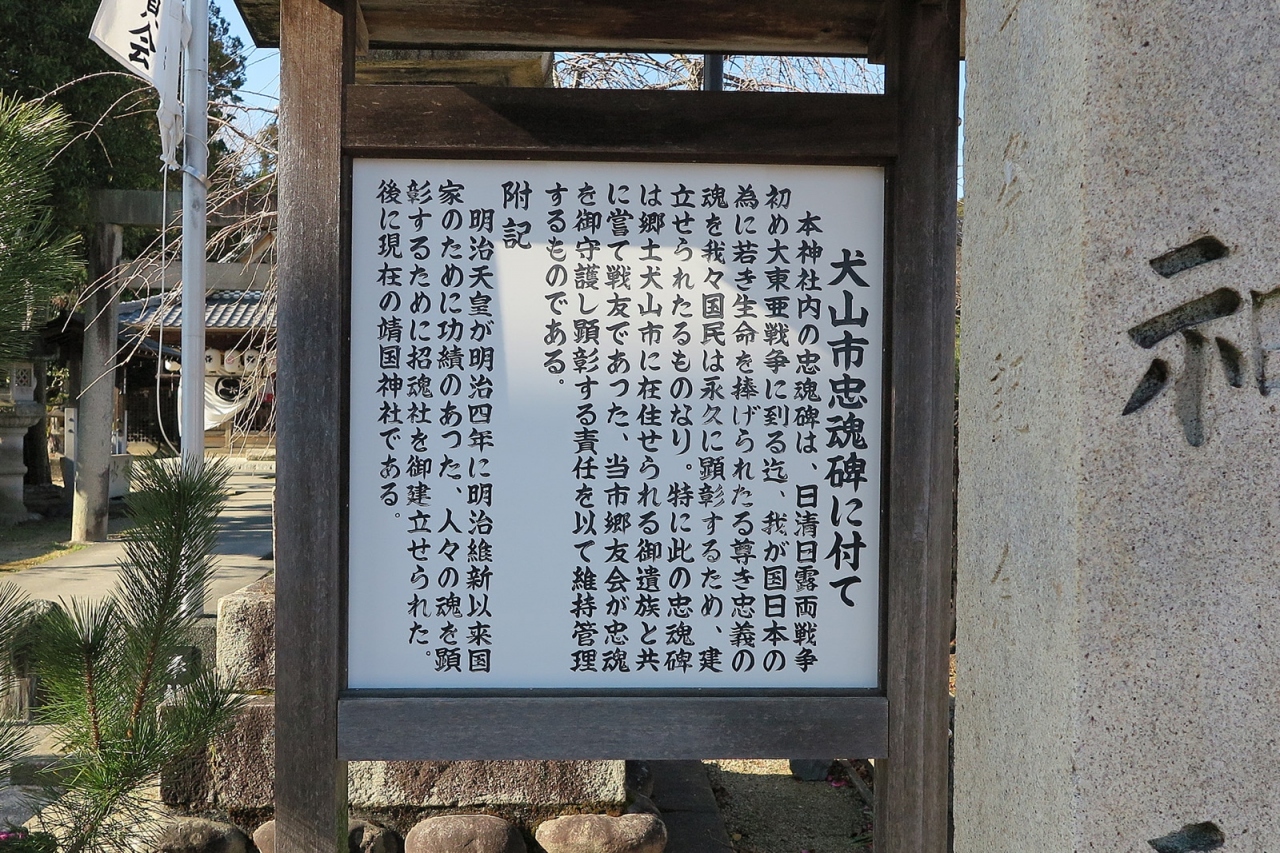 犬山市忠魂碑に付て
本神社内の忠魂碑は、日清日露両戦争
初め大東亜戦争に到る迄、我が国日本の
為に若き生命を捧げられたる尊き忠義の
魂を我々国民は永久に顕彰するため、建
立せられたるものなり。特に此の忠魂碑
は郷土犬山市に在住せられる御遺族と共
に嘗て戦友であった、当市郷友会が忠魂
を御守護し顕彰する責任を以て維持管理
するものである。
附記
明治天皇が明治四年に明治維新以来国
家のために功績のあつた、人々の魂を顕
彰するために招魂社を御建立せられた。
後に現在の靖国神社である。
会